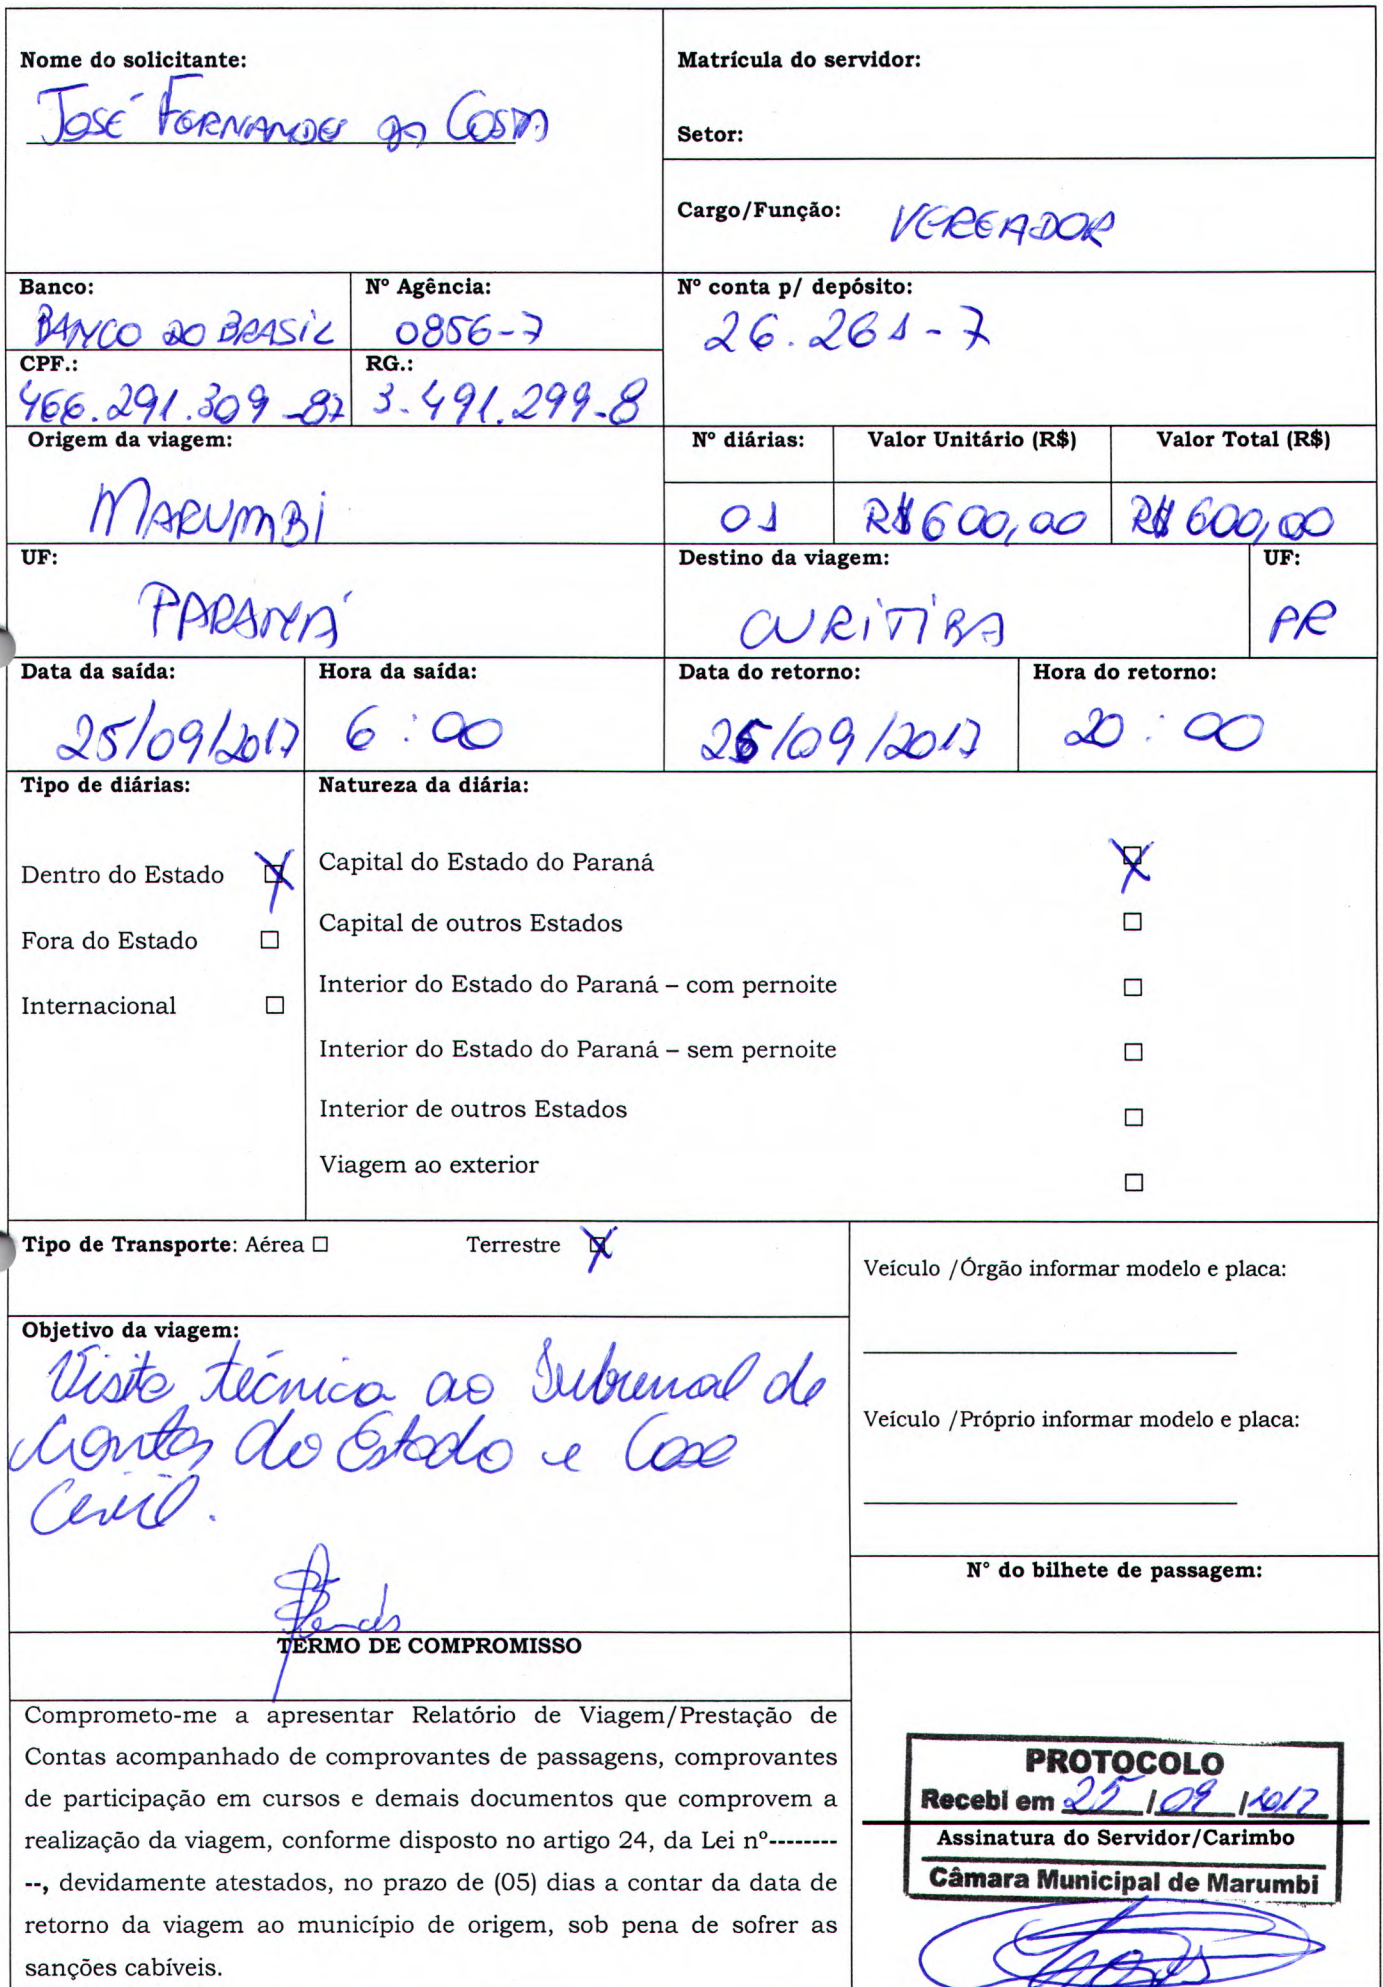 Nome do solicitante:
JOSÉ FERNANDES DA COSTA
Matrícula do servidor:
Setor:
Cargo/Função: VEREADOR
Banco:
BANCO DO BRASIL
Nº Agência:
0856-7
Nº conta p/ depósito:
26.261-7
CPF.:
466.291.309-87
RG.:
3.491.299-8
Origem da viagem:
MARUMBI
Nº diárias: Valor Unitário (R$) Valor Total (R$)
01 R$ 600,00 R$ 600,00
UF:
PARANÁ
Destino da viagem:
CURITIBA
UF:
PR
Data da saída:
25/09/2017
Hora da saída:
6:00
Data do retorno:
26/09/2017
Hora do retorno:
20:00
Tipo de diárias:
Dentro do Estado X
Fora do Estado ☐
Internacional ☐
Natureza da diária:
Capital do Estado do Paraná X
Capital de outros Estados ☐
Interior do Estado do Paraná – com pernoite ☐
Interior do Estado do Paraná – sem pernoite ☐
Interior de outros Estados ☐
Viagem ao exterior ☐
Tipo de Transporte: Aérea ☐ Terrestre X
Objetivo da viagem:
Visita técnica ao Tribunal de
Contas do Estado e Casa
Civil.
Veículo /Órgão informar modelo e placa:
Veículo /Próprio informar modelo e placa:
N° do bilhete de passagem:
TERMO DE COMPROMISSO
Comprometo-me a apresentar Relatório de Viagem/Prestação de
Contas acompanhado de comprovantes de passagens, comprovantes
de participação em cursos e demais documentos que comprovem a
realização da viagem, conforme disposto no artigo 24, da Lei nº--------
--, devidamente atestados, no prazo de (05) dias a contar da data de
retorno da viagem ao município de origem, sob pena de sofrer as
sanções cabíveis.
PROTOCOLO
Recebi em 25/09/2017
Assinatura do Servidor/Carimbo
Câmara Municipal de Marumbi